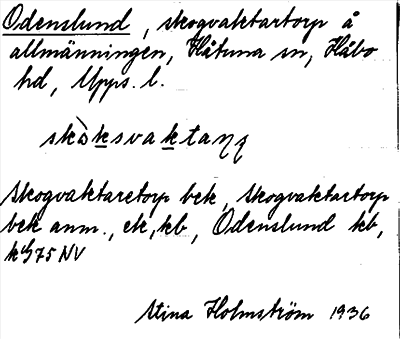 Odenslund, skogvaktartorp å
allmänningen, Håtuna sn, Håbo
hd, Upps. l.
skò̀ksvaktaɳɳ
Skogvaktaretorp bek, Skogvaktartorp
bek anm., ek, kb, Odenslund kb,
75 NV
Stina Holmström 1936